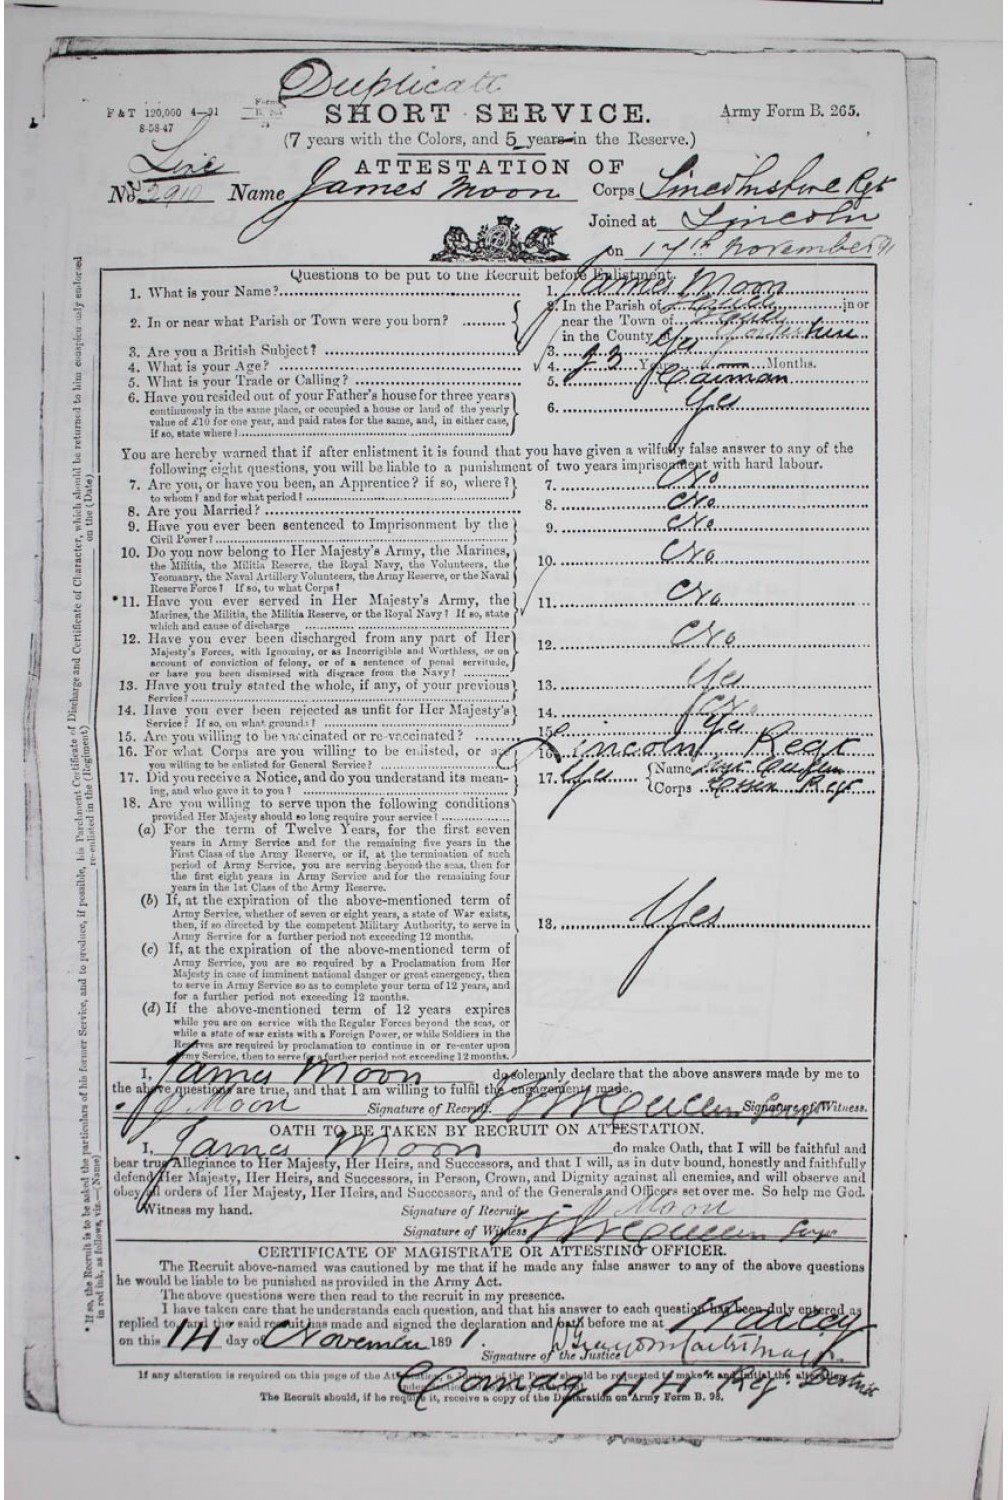 Duplicate
F & T 120,000 4—91
8-58-47
Form
B. 265
SHORT SERVICE.
Army Form B. 265.
(7 years with the Colors, and 5 years in the Reserve.)
Line
ATTESTATION OF
No. 2910 Name James Moon Corps Lincolnshire Rgt
Joined at Lincoln
on 17th November 91
Questions to be put to the Recruit before Enlistment.
1. What is your Name?
1. James Moon
2. In or near what Parish or Town were you born?
2. In the Parish of in or
near the Town of
in the County of Yorkshire
3. Are you a British Subject?
3. Yes
4. What is your Age?
4. 23 Years Months.
5. What is your Trade or Calling?
5. Carman
6. Have you resided out of your Father's house for three years
continuously in the same place, or occupied a house or land of the yearly
value of £10 for one year, and paid rates for the same, and, in either case,
if so, state where?
6. Yes
You are hereby warned that if after enlistment it is found that you have given a wilfully false answer to any of the
following eight questions, you will be liable to a punishment of two years imprisonment with hard labour.
7. Are you, or have you been, an Apprentice? if so, where?
to whom? and for what period?
7. No
8. Are you Married?
8. No
9. Have you ever been sentenced to Imprisonment by the
Civil Power?
9. No
10. Do you now belong to Her Majesty's Army, the Marines,
the Militia, the Militia Reserve, the Royal Navy, the Volunteers, the
Yeomanry, the Naval Artillery Volunteers, the Army Reserve, or the Naval
Reserve Force? If so, to what Corps?
10. No
*11. Have you ever served in Her Majesty's Army, the
Marines, the Militia, the Militia Reserve, or the Royal Navy? If so, state
which and cause of discharge
11. No
12. Have you ever been discharged from any part of Her
Majesty's Forces, with Ignominy, or as Incorrigible and Worthless, or on
account of conviction of felony, or of a sentence of penal servitude,
or have you been dismissed with disgrace from the Navy?
12. No
13. Have you truly stated the whole, if any, of your previous
Service?
13. Yes
14. Have you ever been rejected as unfit for Her Majesty's
Service? If so, on what grounds?
14. No
15. Are you willing to be vaccinated or re-vaccinated?
15. Yes
16. For what Corps are you willing to be enlisted, or are
you willing to be enlisted for General Service?
16. Lincoln Regt
17. Did you receive a Notice, and do you understand its mean-
ing, and who gave it to you?
17. Yes Name
Corps Essex Regt
18. Are you willing to serve upon the following conditions
provided Her Majesty should so long require your service?
(a) For the term of Twelve Years, for the first seven
years in Army Service and for the remaining five years in the
First Class of the Army Reserve, or if, at the termination of such
period of Army Service, you are serving beyond the seas, then for
the first eight years in Army Service and for the remaining four
years in the 1st Class of the Army Reserve.
(b) If, at the expiration of the above-mentioned term of
Army Service, whether of seven or eight years, a state of War exists,
then, if so directed by the competent Military Authority, to serve in
Army Service for a further period not exceeding 12 months.
(c) If, at the expiration of the above-mentioned term of
Army Service, you are so required by a Proclamation from Her
Majesty in case of imminent national danger or great emergency, then
to serve in Army Service so as to complete your term of 12 years, and
for a further period not exceeding 12 months.
(d) If the above-mentioned term of 12 years expires
while you are on service with the Regular Forces beyond the seas, or
while a state of war exists with a Foreign Power, or while Soldiers in the
Reserves are required by proclamation to continue in or re-enter upon
Army Service, then to serve for a further period not exceeding 12 months.
18. Yes
I, James Moon do solemnly declare that the above answers made by me to
the above questions are true, and that I am willing to fulfil the engagements made.
J Moon Signature of Recruit. Signature of Witness.
OATH TO BE TAKEN BY RECRUIT ON ATTESTATION.
I, James Moon do make Oath, that I will be faithful and
bear true Allegiance to Her Majesty, Her Heirs, and Successors, and that I will, as in duty bound, honestly and faithfully
defend Her Majesty, Her Heirs, and Successors, in Person, Crown, and Dignity against all enemies, and will observe and
obey all orders of Her Majesty, Her Heirs, and Successors, and of the Generals and Officers set over me. So help me God.
Witness my hand. Signature of Recruit J Moon
Signature of Witness
CERTIFICATE OF MAGISTRATE OR ATTESTING OFFICER.
The Recruit above-named was cautioned by me that if he made any false answer to any of the above questions
he would be liable to be punished as provided in the Army Act.
The above questions were then read to the recruit in my presence.
I have taken care that he understands each question, and that his answer to each question has been duly entered as
replied to, and the said recruit has made and signed the declaration and oath before me at Warley
on this 14 day of November 1891.
Signature of the Justice
If any alteration is required on this page of the Attestation, a Justice of the Peace should be requested to make it and initial the alteration
Comdg 44th Reg. District
The Recruit should, if he require it, receive a copy of the Declaration on Army Form B. 98.
* If so, the Recruit is to be asked the particulars of his former Service, and to produce, if possible, his Parchment Certificate of Discharge and Certificate of Character, which should be returned to him conspicuously endorsed
in red ink, as follows, viz.—(Name) re-enlisted in the (Regiment) on the (Date)